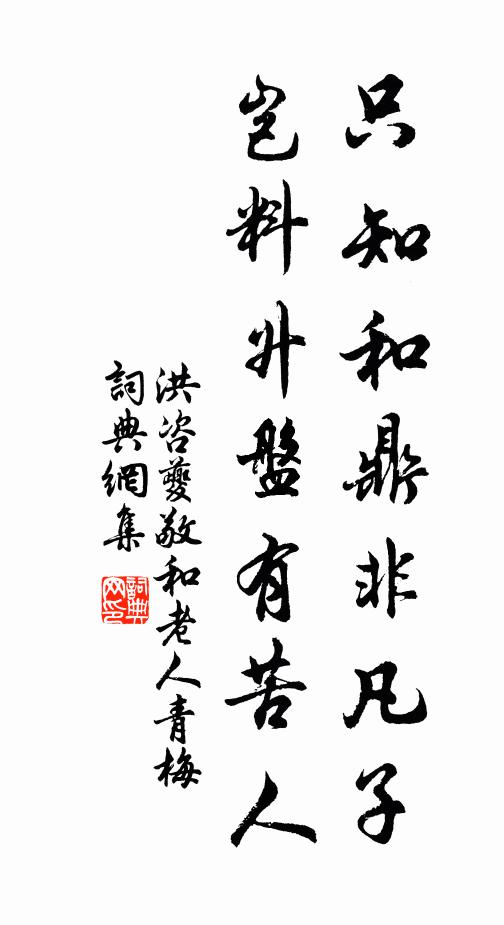 只知和鼎非凡子
豈料升盤有苦人
洪咨夔敬和老人青梅
詞典網集
詞典
网印